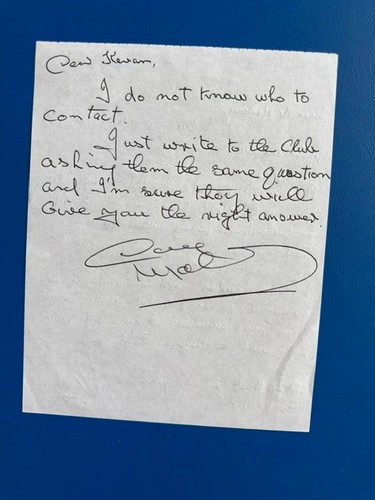 Dear Kevan,
I do not know who to
contact.
Just write to the Club
asking them the same question
and I'm sure they will
Give you the right answer.
Dave